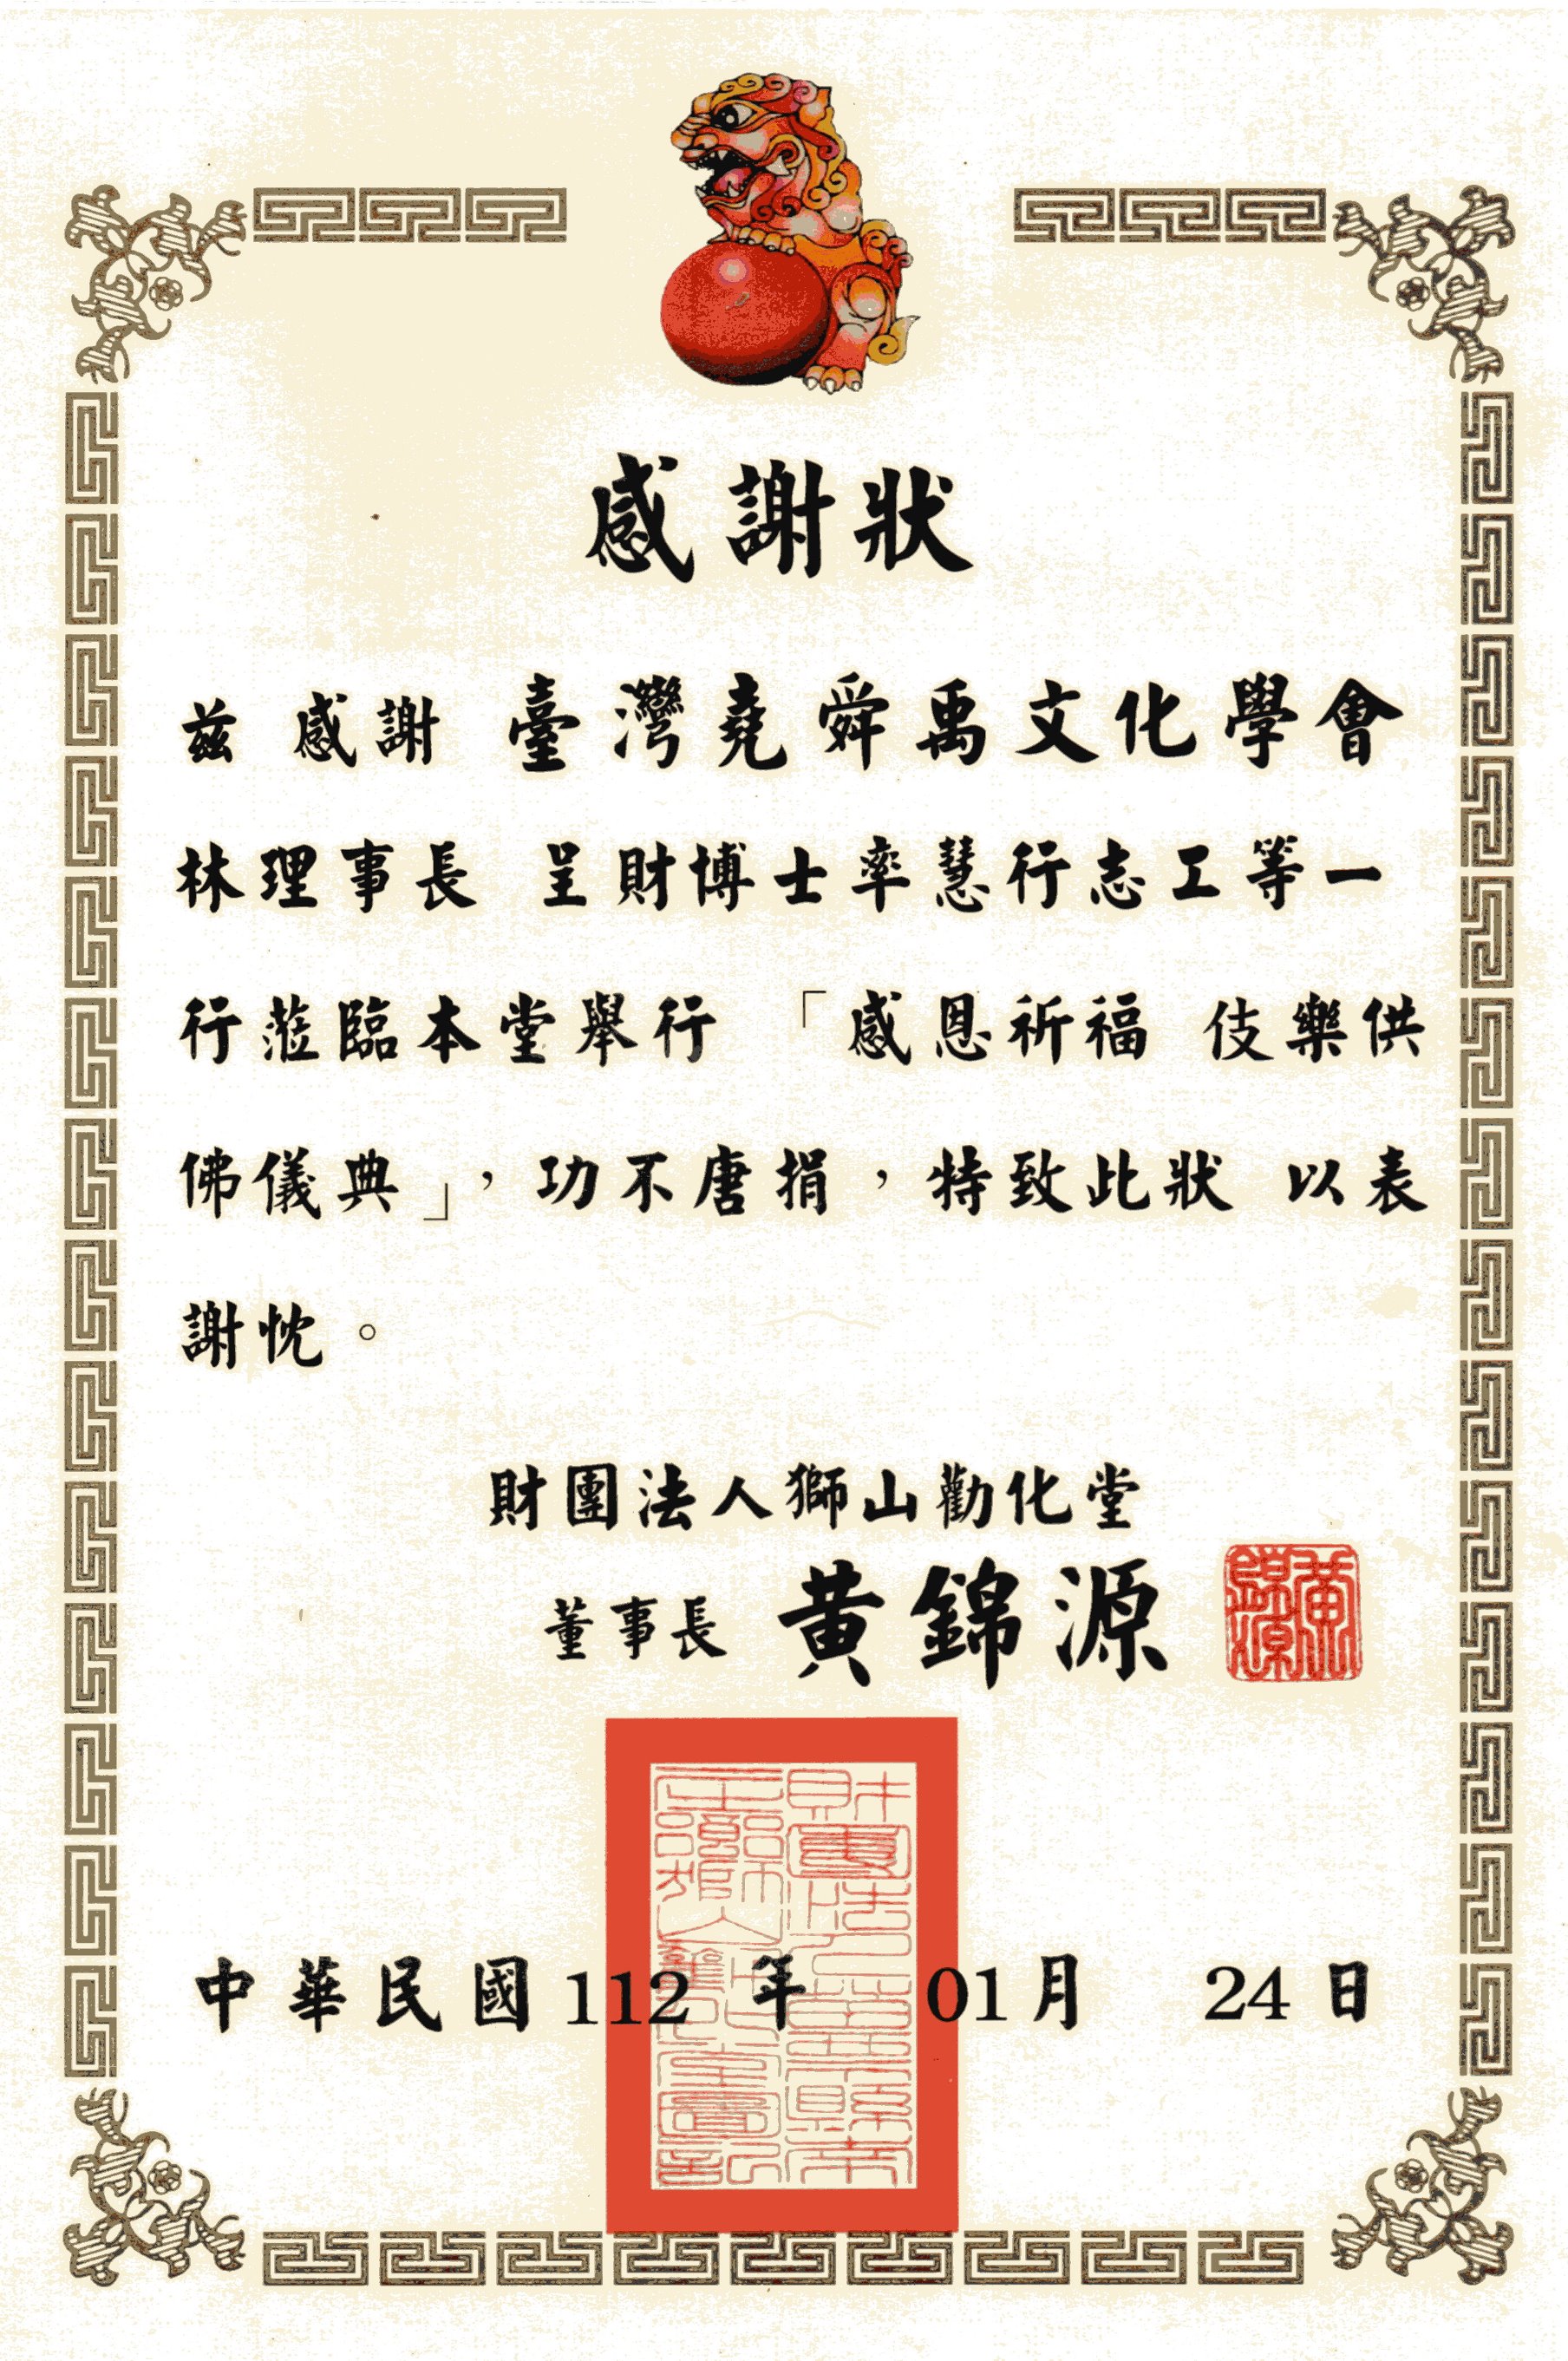 感謝狀
茲 感謝 臺灣堯舜禹文化學會
林理事長 呈財博士率慧行志工等一
行蒞臨本堂舉行 「感恩祈福 伎樂供
佛儀典」，功不唐捐，特致此狀 以表
謝忱。
財團法人獅山勸化堂
董事長 黃錦源
黃錦源
中華民國 112 年 01 月 24 日